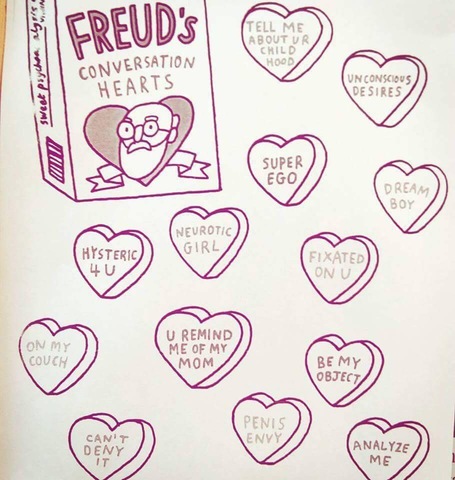 FREUD'S
CONVERSATION
HEARTS
sweet
TELL ME
ABOUT UR
CHILD
HOOD
UNCONSCIOUS
DESIRES
SUPER
EGO
DREAM
BOY
NEUROTIC
GIRL
HYSTERIC
4 U
FIXATED
ON U
ON MY
COUCH
U REMIND
ME OF MY
MOM
BE MY
OBJECT
CAN'T
DENY
IT
PENIS
ENVY
ANALYZE
ME